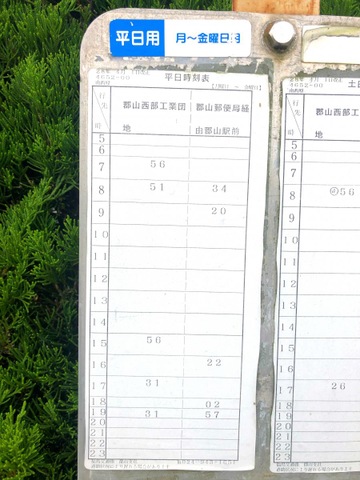 平日用 月～金曜日用
平日時刻表
行先 郡山西部工業団地 郡山郵便局経由郡山駅前
時
5
6
7 56
8 51 34
9 20
10
11
12
13
14
15 56
16 22
17 31
18 02
19 31 57
20
21
22
23
土日
行先 郡山西部工業団地
時
5
6
7
8 56
9
10
11
12
13
14
15
16
17 26
18
19
20
21
22
23